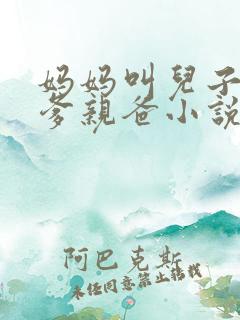 妈妈叫兒子
爹親爸小說
阿巴克斯
未经同意禁止转载